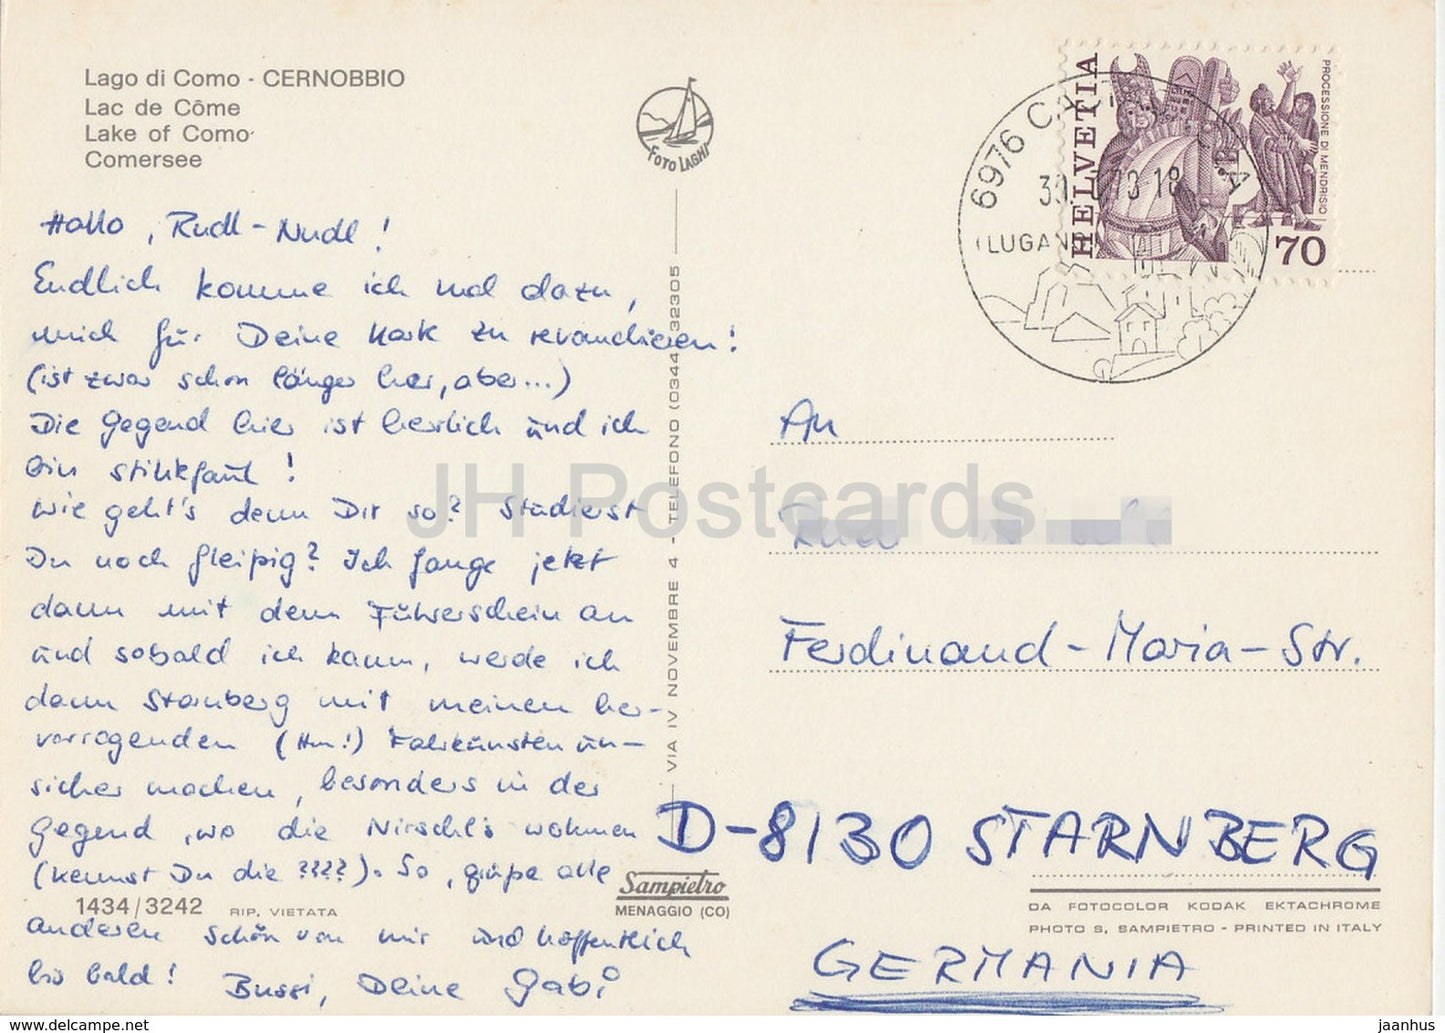 Lago di Como - CERNOBBIO
Lac de Côme
Lake of Como
Comersee
FOTO LAGHI
Hallo, Rudl-Nudl!
Endlich komme ich mal dazu,
mich für Deine Kark zu revanchieren!
(ist zwar schon länger her, aber...)
Die Gegend hier ist herrlich und ich
bin stinkfaul!
Wie geht's denn Dir so? Studierst
Du noch fleißig? Ich fange jetzt
dann mit dem Führerschein an
und sobald ich kann, werde ich
dann Starnberg mit meinen her-
vorragenden (Hm!) Fahrkünsten un-
sicher machen, besonders in der
Gegend, wo die Nirschl's wohnen
(kennst Du die ????). So, grüße alle
anderen schön von mir und hoffentlich
bis bald! Bussi, Deine Gabi
1434/3242 RIP. VIETATA
VIA IV NOVEMBRE 4 - TELEFONO (0344) 32305
Sampietro
MENAGGIO (CO)
HELVETIA
PROCESSIONE DI MENDRISIO
70
6976
(LUGAN
An
Ferdinand-Maria-Str.
D-8130 STARNBERG
GERMANIA
DA FOTOCOLOR KODAK EKTACHROME
PHOTO S. SAMPIETRO - PRINTED IN ITALY
JH Postcards
jaanhus www.delcampe.net